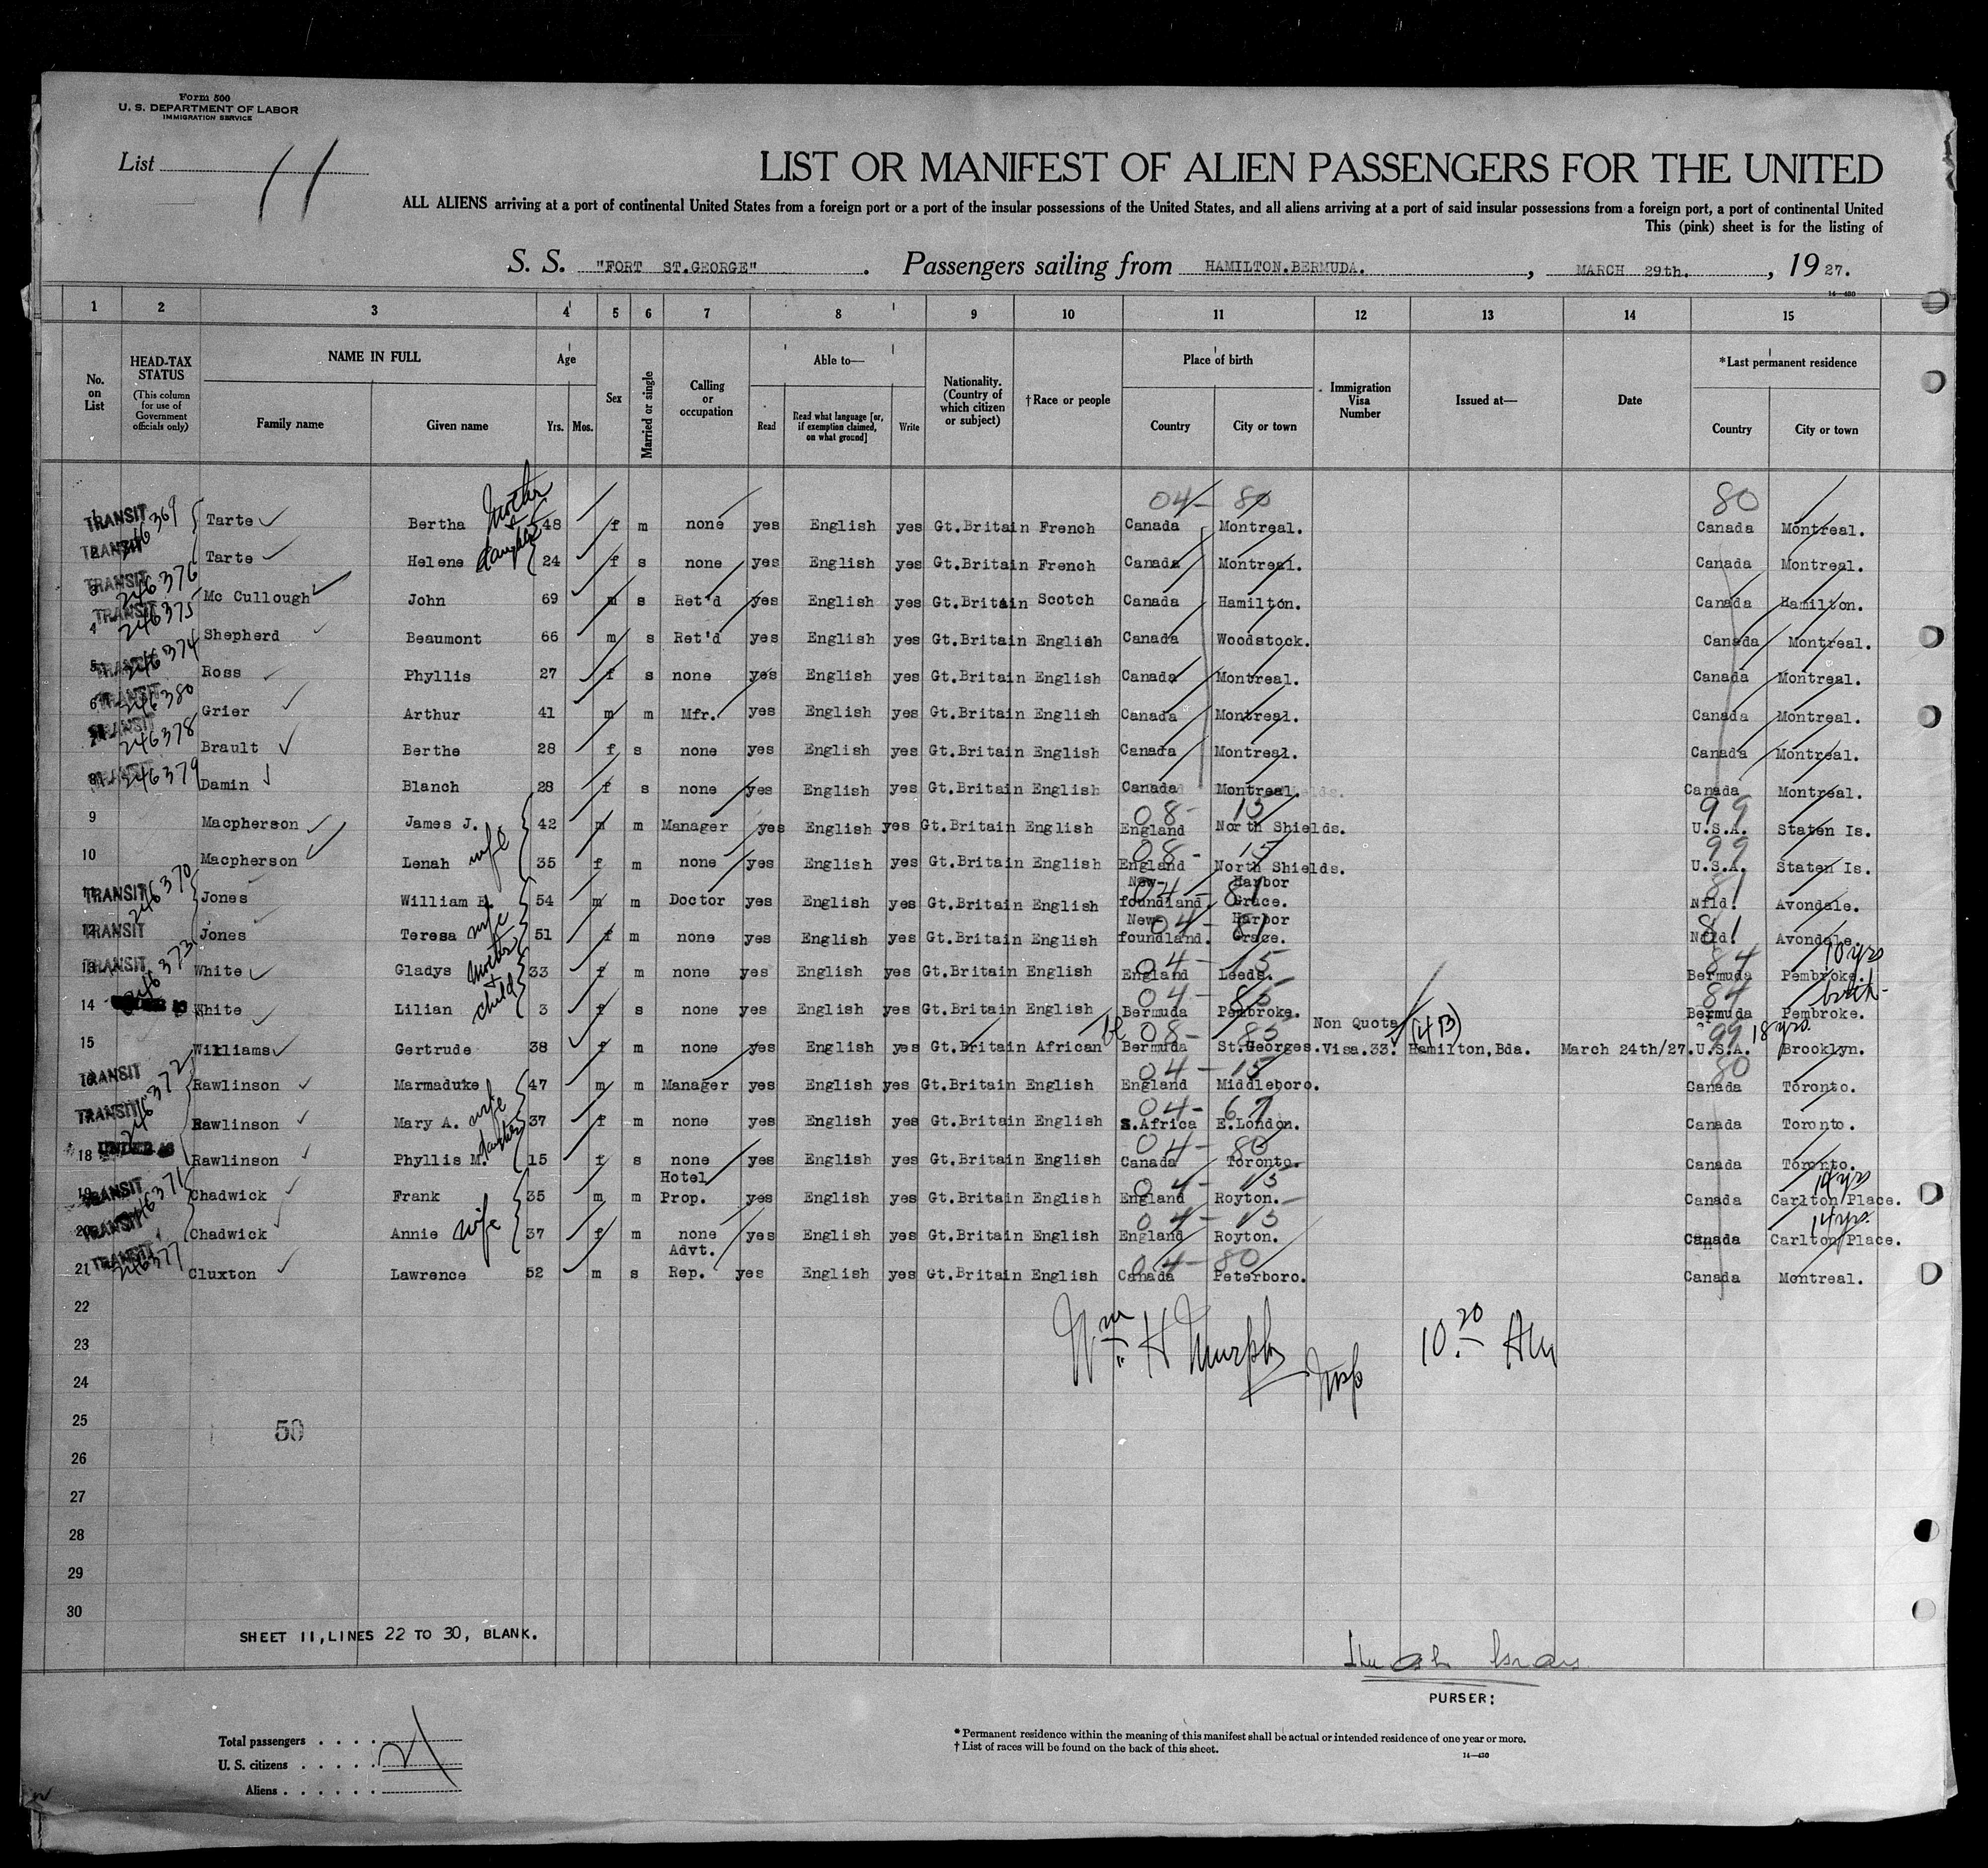 Form 500
U. S. DEPARTMENT OF LABOR
IMMIGRATION SERVICE
List 11
LIST OR MANIFEST OF ALIEN PASSENGERS FOR THE UNITED
ALL ALIENS arriving at a port of continental United States from a foreign port or a port of the insular possessions of the United States, and all aliens arriving at a port of said insular possessions from a foreign port, a port of continental United
This (pink) sheet is for the listing of
S. S. "FORT ST.GEORGE" . Passengers sailing from HAMILTON.BERMUDA. , MARCH 29th. , 19 27.
14—430
1 2 3 4 5 6 7 8 9 10 11 12 13 14 15
No. on List HEAD-TAX STATUS (This column for use of Government officials only) NAME IN FULL Family name Given name Age Yrs. Mos. Sex Married or single Calling or occupation Able to— Read Read what language [or, if exemption claimed, on what ground] Write Nationality. (Country of which citizen or subject) †Race or people Place of birth Country City or town Immigration Visa Number Issued at— Date *Last permanent residence Country City or town
04- 80 80
TRANSIT 246369 Tarte Bertha Mother 48 f m none yes English yes Gt.Britain French Canada Montreal. Canada Montreal.
TRANSIT Tarte Helene daughter 24 f s none yes English yes Gt.Britain French Canada Montreal. Canada Montreal.
3 TRANSIT 246376 Mc Cullough John 69 m s Ret'd yes English yes Gt.Britain Scotch Canada Hamilton. Canada Hamilton.
4 TRANSIT 246375 Shepherd Beaumont 66 m s Ret'd yes English yes Gt.Britain English Canada Woodstock. Canada Montreal.
5 TRANSIT 246374 Ross Phyllis 27 f s none yes English yes Gt.Britain English Canada Montreal. Canada Montreal.
6 TRANSIT 246380 Grier Arthur 41 m m Mfr. yes English yes Gt.Britain English Canada Montreal. Canada Montreal.
TRANSIT 246378 Brault Berthe 28 f s none yes English yes Gt.Britain English Canada Montreal. Canada Montreal.
8 TRANSIT 246379 Damin Blanch 28 f s none yes English yes Gt.Britain English Canada Montreal. Canada Montreal.
08- 15 99
9 Macpherson James J. 42 m m Manager yes English yes Gt.Britain English England North Shields. U.S.A. Staten Is.
08- 15 99
10 Macpherson Lenah wife 35 f m none yes English yes Gt.Britain English England North Shields. U.S.A. Staten Is.
04- 81 81
TRANSIT 246370 Jones William B. 54 m m Doctor yes English yes Gt.Britain English New-foundland. Harbor Grace. Nfld. Avondale.
04- 81 81
12 TRANSIT Jones Teresa wife 51 f m none yes English yes Gt.Britain English New-foundland. Harbor Grace. Nfld. Avondale.
04- 15 84 10 yrs
13 TRANSIT 246373 White Gladys Mother 33 f m none yes English yes Gt.Britain English England Leeds. Bermuda Pembroke.
04- 85 84
14 White Lilian child 3 f s none yes English yes Gt.Britain English Bermuda Pembroke. Bermuda Pembroke.
08- 85 Non Quota (4B) 99 18 yrs.
15 Williams Gertrude 38 f m none yes English yes Gt.Britain African bl Bermuda St.Georges. Visa.33. Hamilton,Bda. March 24th/27. U.S.A. Brooklyn.
04- 15 80
TRANSIT 246372 Rawlinson Marmaduke 47 m m Manager yes English yes Gt.Britain English England Middleboro. Canada Toronto.
04- 67
TRANSIT Rawlinson Mary A. wife 37 f m none yes English yes Gt.Britain English S.Africa E.London. Canada Toronto.
04- 80
18 UNDER 16 Rawlinson Phyllis M. daughter 15 f s none yes English yes Gt.Britain English Canada Toronto. Canada Toronto.
04- 15 14 yrs
19 TRANSIT 246371 Chadwick Frank 35 m m Hotel Prop. yes English yes Gt.Britain English England Royton. Canada Carlton Place.
04- 15 14 yrs.
20 TRANSIT Chadwick Annie wife 37 f m none yes English yes Gt.Britain English England Royton. Canada Carlton Place.
04- 80
21 TRANSIT 246377 Cluxton Lawrence 52 m s Advt. Rep. yes English yes Gt.Britain English Canada Peterboro. Canada Montreal.
22
23 Wm H Murphy Insp 10.20 AM
24
25 50
26
27
28
29
30
SHEET 11,LINES 22 TO 30, BLANK.
PURSER:
Total passengers . . . .
U. S. citizens . . . . . 21
Aliens . . . . . .
* Permanent residence within the meaning of this manifest shall be actual or intended residence of one year or more.
† List of races will be found on the back of this sheet.
14—430